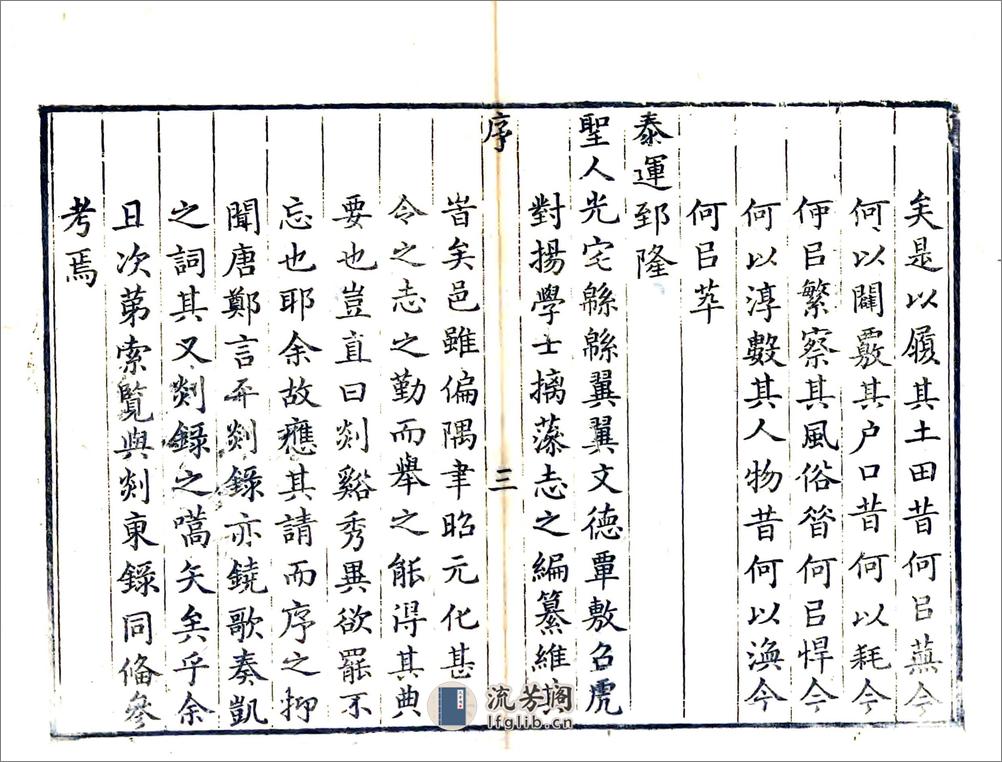 矣是以履其土田昔何㠯蕪今
何以闢覈其户口昔何以耗今
何㠯繁察其風俗昝何㠯悍今
何以淳數其人物昔何以渙今
何㠯萃
泰運郅隆
聖人光宅緜緜翼翼文德覃敷召虎
對揚學士摛藻志之編纂維
序
三
旹矣邑雖偏隅聿昭元化甚
令之志之勤而舉之能得其典
要也豈直曰剡谿秀異欲罷不
忘也耶余故應其請而序之抑
聞唐鄭言平剡錄亦鐃歌奏凱
之詞其又剡錄之嚆矢矣乎余
且次第索覽與剡東錄同俻參
考焉
流芳阁
lfglib.cn